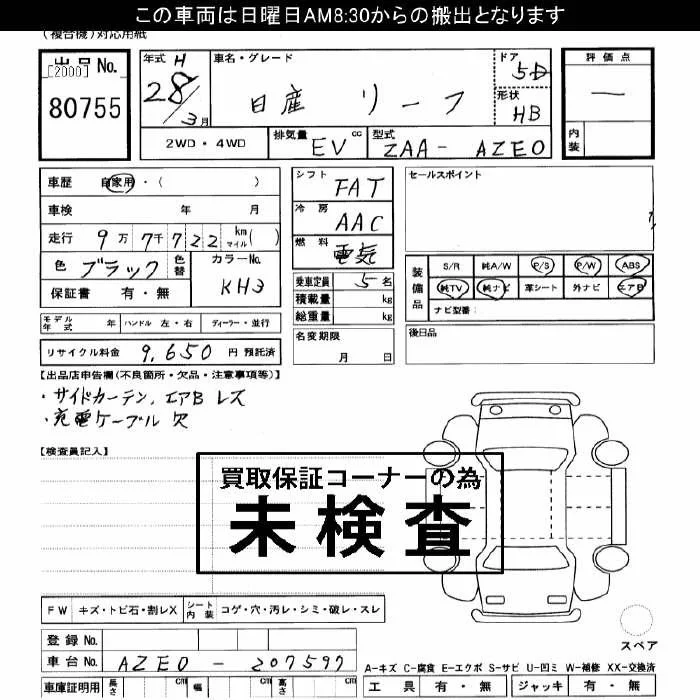 この車両は日曜日AM8:30からの搬出となります
(複合機)対応用紙
出品No.
[2000]
80755
年式 H
28/3月
車名・グレード
日産 リーフ
ドア
5D
形状
HB
評価点
―
内装
2WD・4WD
排気量 EV cc
型式 ZAA- AZE0
車歴 自家用・( )
車検 年 月
走行 9万7千722 km マイル( )
色 ブラック 色替
カラーNo.
KH3
保証書 有・無
シフト FAT
冷房 AAC
燃料 電気
乗車定員 5名
積載量 kg
総重量 kg
名変期限
月 日
セールスポイント
装備品
S/R 純A/W P/S P/W ABS
純TV 純ナビ 革シート 外ナビ エアB
ナビ型番:
後日品
モデル年式 年 ハンドル 左・右 ディーラー・並行
リサイクル料金 9,650 円 預託済
【出品店申告欄(不良箇所・欠品・注意事項等)】
・サイドカーテン,エアB レス
・充電ケーブル 欠
【検査員記入】
買取保証コーナーの為
未検査
FW キズ・トビ石・割レX シート内装 コゲ・穴・汚レ・シミ・破レ・スレ
スペア
登録No.
車台No. AZE0 - 207597
A-キズ C-腐食 E-エクボ S-サビ U-凹ミ W-補修 XX-交換済
車庫証明用 長さ cm 幅 cm 高さ cm
工具 有・無 ジャッキ 有・無